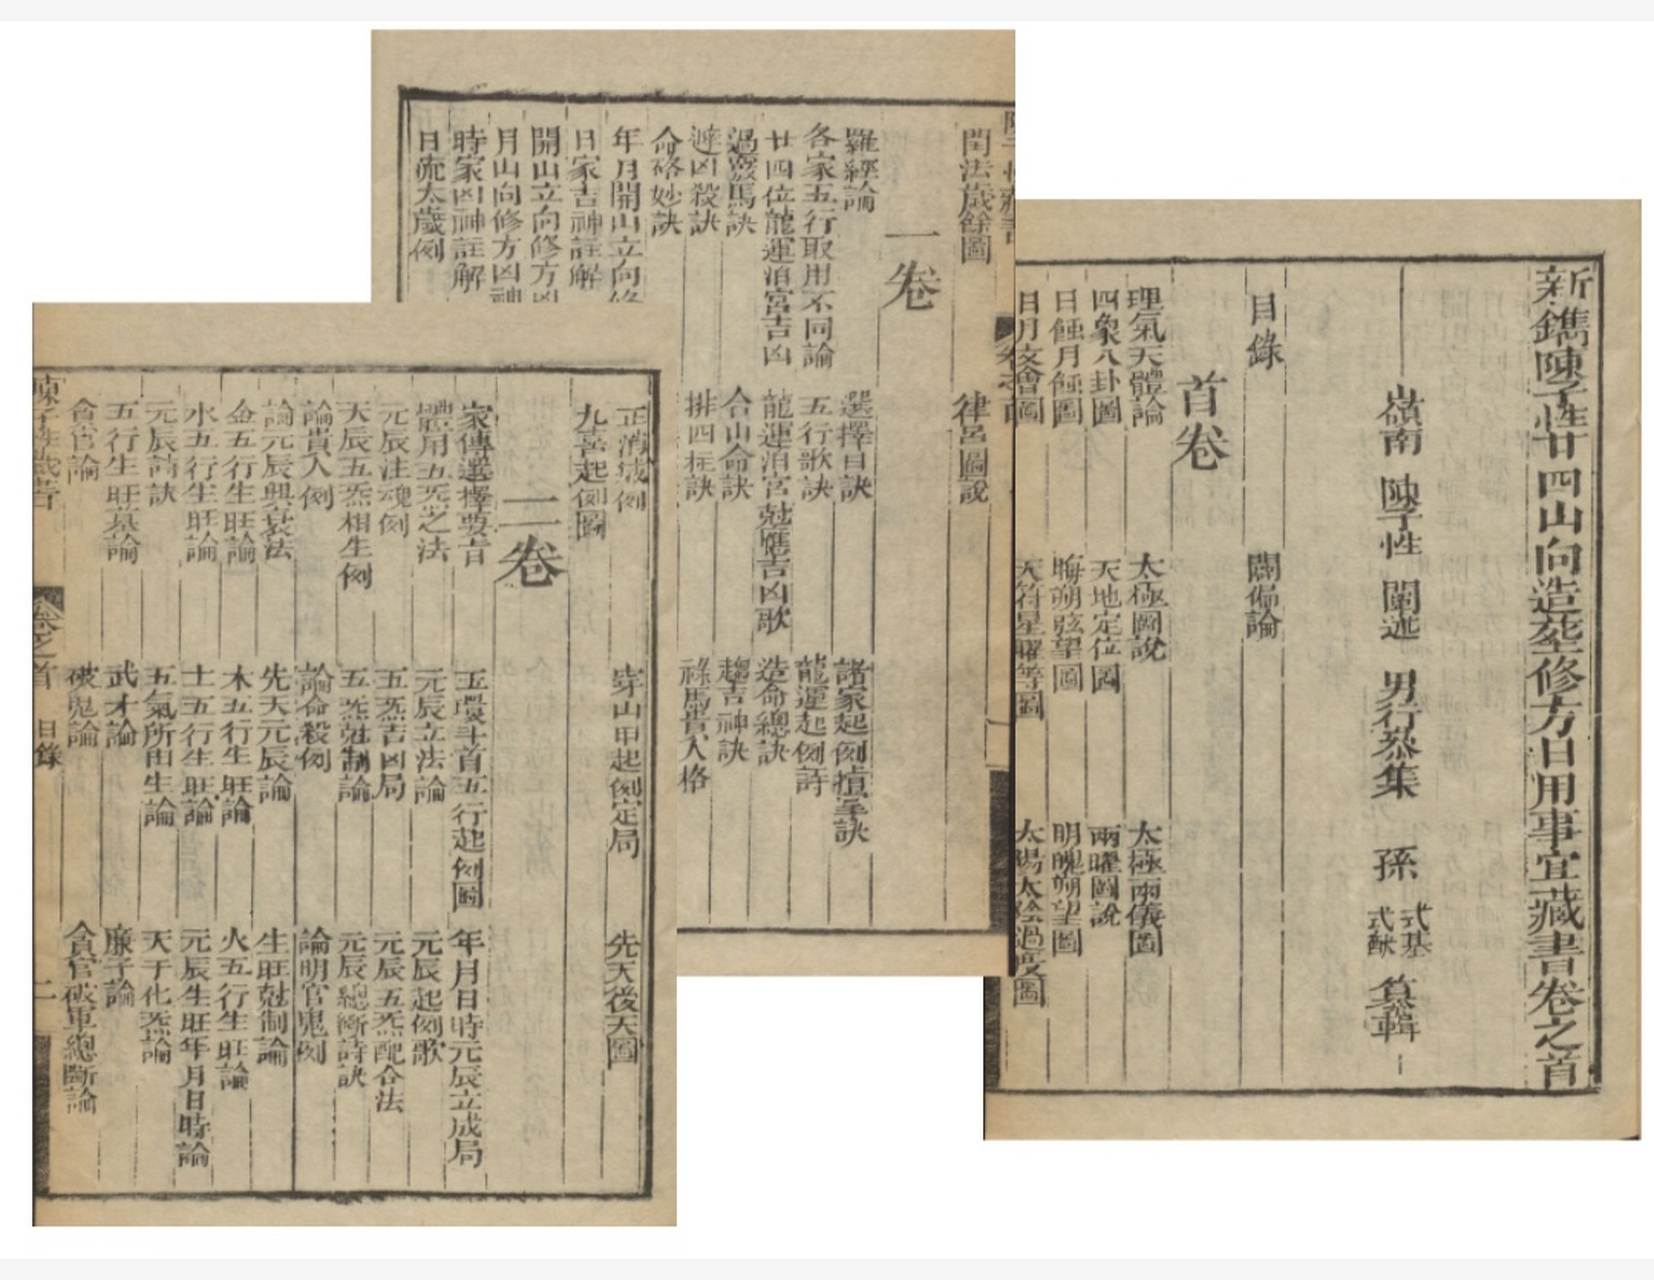 新鐫陳子性廿四山向造塟修方日用事宜藏書卷之首
嶺南 陳子性 闡述 男行恭集 孫 式基 式猷 纂輯
目錄 闢偽論
首卷
理氣天體論 太極圖說 太極兩儀圖
四象八卦圖 天地定位圖 兩曜圖說
日蝕月蝕圖 晦朔弦望圖 明魄朔望圖
日月交會圖 天符星曜等圖 太陽太陰過度圖
閏法歲餘圖 律呂圖說
一卷
羅經論 選擇目訣 諸家起例掯掌訣
各家五行取用不同論 五行歌訣 龍運起例詩
廿四位龍運泊宮吉凶 龍運泊宮尅應吉凶歌 造命總訣
過 馬訣 合山命訣 趨吉神訣
避凶殺訣 排四柱訣 祿馬貴人格
命硌妙訣
年月開山立向修
日家吉神註解
開山立向修方凶
月山向修方凶神
時家凶神註解
日流太歲例
正消滅例 穿山甲起例定局 先天後天圖
九喜起例圖
二卷
家傳選擇要旨 五環斗首五行起例圖 年月日時元辰立成局
體用五炁之法 元辰立法論 元辰起例歌
元辰注魂例 五炁吉凶局 元辰五炁配合法
天辰五炁相生例 五炁尅制論 元辰總斷詩訣
論貴人例 論命殺例 論明官鬼例
論元辰興衰法 先天元辰論 生旺尅制論
金五行生旺論 木五行生旺論 火五行生旺論
水五行生旺論 土五行生旺論 元辰生旺年月日時論
元辰詩訣 五氣所由生論 天干化炁論
五行生旺墓論 武才論 廉子論
貪官論 破鬼論 貪官破軍總斷論
陳子性藏書 卷之首 目錄 二